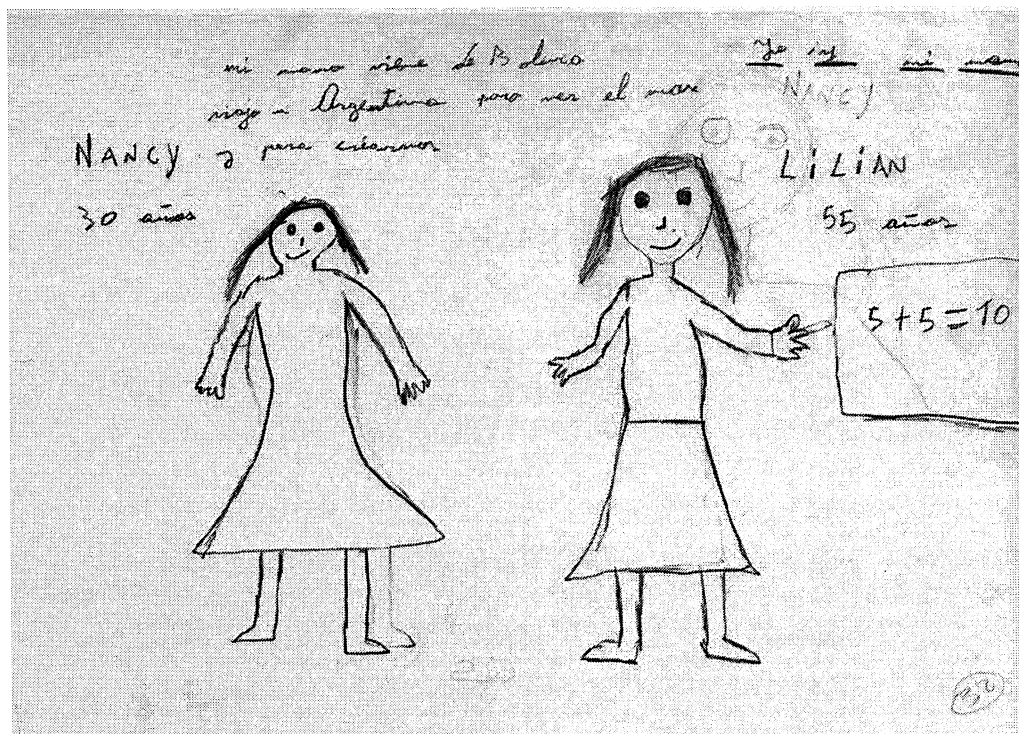 mi mama viene de Bolivia
viajo a Argentina para ver el mar
y para criarnos
yo y mi mam
NANCY
NANCY
30 años
LiLiAN
55 años
5+5=10